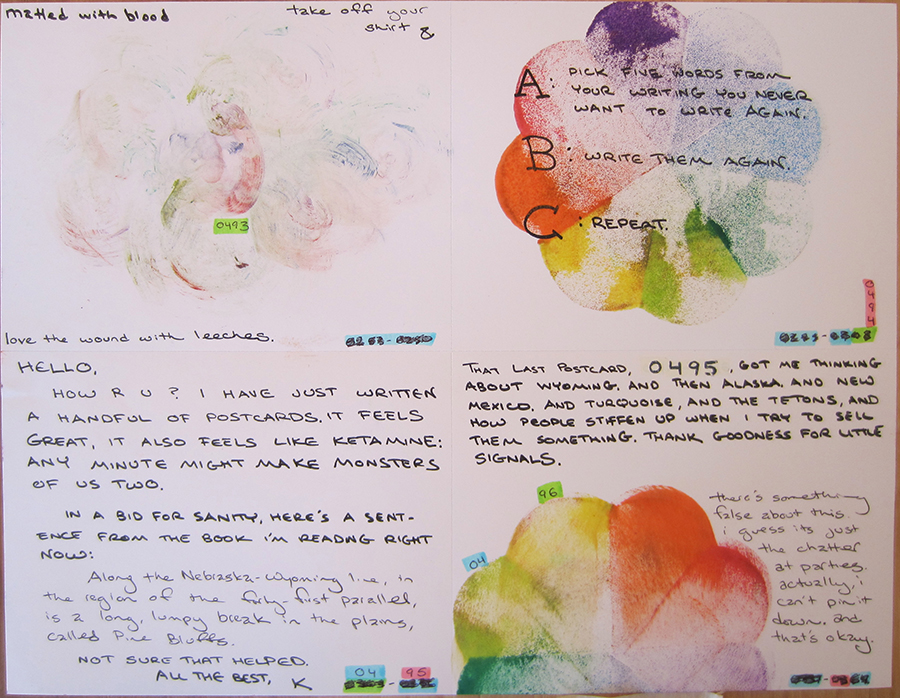 matted with blood
take off your
shirt &
0493
love the wound with leeches.
A: PICK FIVE WORDS FROM
YOUR WRITING YOU NEVER
WANT TO WRITE AGAIN.
B: WRITE THEM AGAIN.
C: REPEAT.
0494
HELLO,
HOW R U? I HAVE JUST WRITTEN
A HANDFUL OF POSTCARDS. IT FEELS
GREAT, IT ALSO FEELS LIKE KETAMINE:
ANY MINUTE MIGHT MAKE MONSTERS
OF US TWO.
IN A BID FOR SANITY, HERE'S A SENT-
ENCE FROM THE BOOK I'M READNG RIGHT
NOW:
Along the Nebraska-Wyoming line, in
the region of the forty-first parallel,
is a long, lumpy break in the plains,
called Pine Bluffs.
NOT SURE THAT HELPED.
ALL THE BEST, K
04 95
THAT LAST POSTCARD, 0495, GOT ME THINKING
ABOUT WYOMING. AND THEN ALASKA. AND NEW
MEXICO. AND TURQUOISE, AND THE TETONS, AND
HOW PEOPLE STIFFEN UP WHEN I TRY TO SELL
THEM SOMETHING. THANK GOODNESS FOR LITTLE
SIGNALS.
96
04
there's something
false about this.
i guess its just
the chatter
at parties.
actually, i
can't pin it
down. and
that's okay.